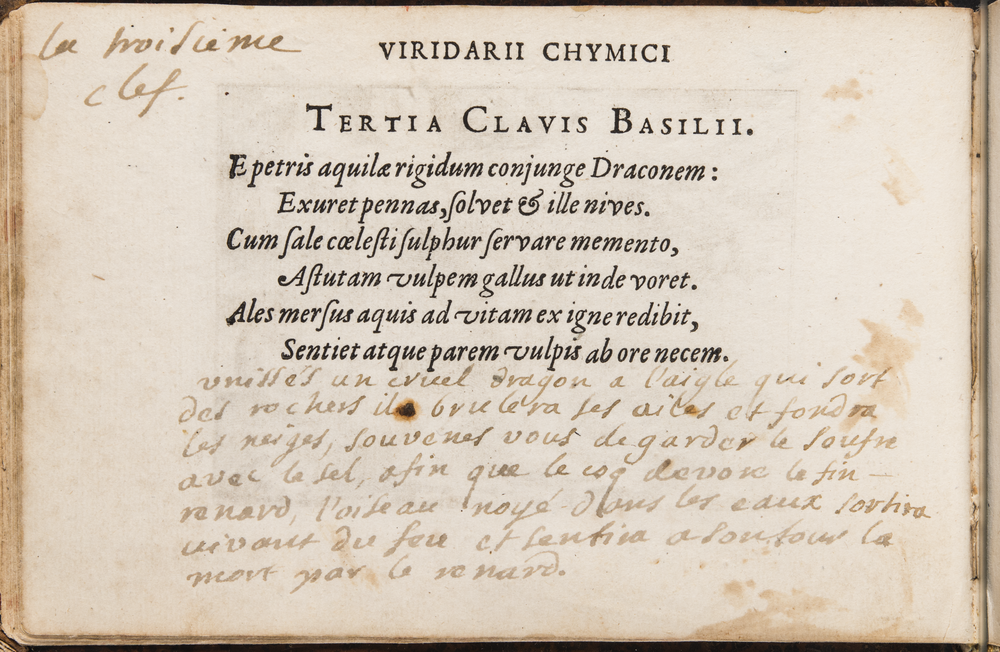 la troisieme
clef.
VIRIDARII CHYMICI
TERTIA CLAVIS BASILII.
E petris aquilæ rigidum conjunge Draconem:
Exuret pennas, ſolvet & ille nives.
Cum ſale cœleſti ſulphur ſervare memento,
Aſtutam vulpem gallus ut inde voret.
Ales merſus aquis ad vitam ex igne redibit,
Sentiet atque parem vulpis ab ore necem.
unissés un cruel dragon a l'aigle qui sort
des rochers il brulera ses ailes et fondra
les neiges, souvenes vous de garder le soufre
avec le sel, afin que le coq devore le fin
renard, l'oiseau noyé dans les eaux sortira
vivant du feu et sentira a son tour la
mort par le renard.